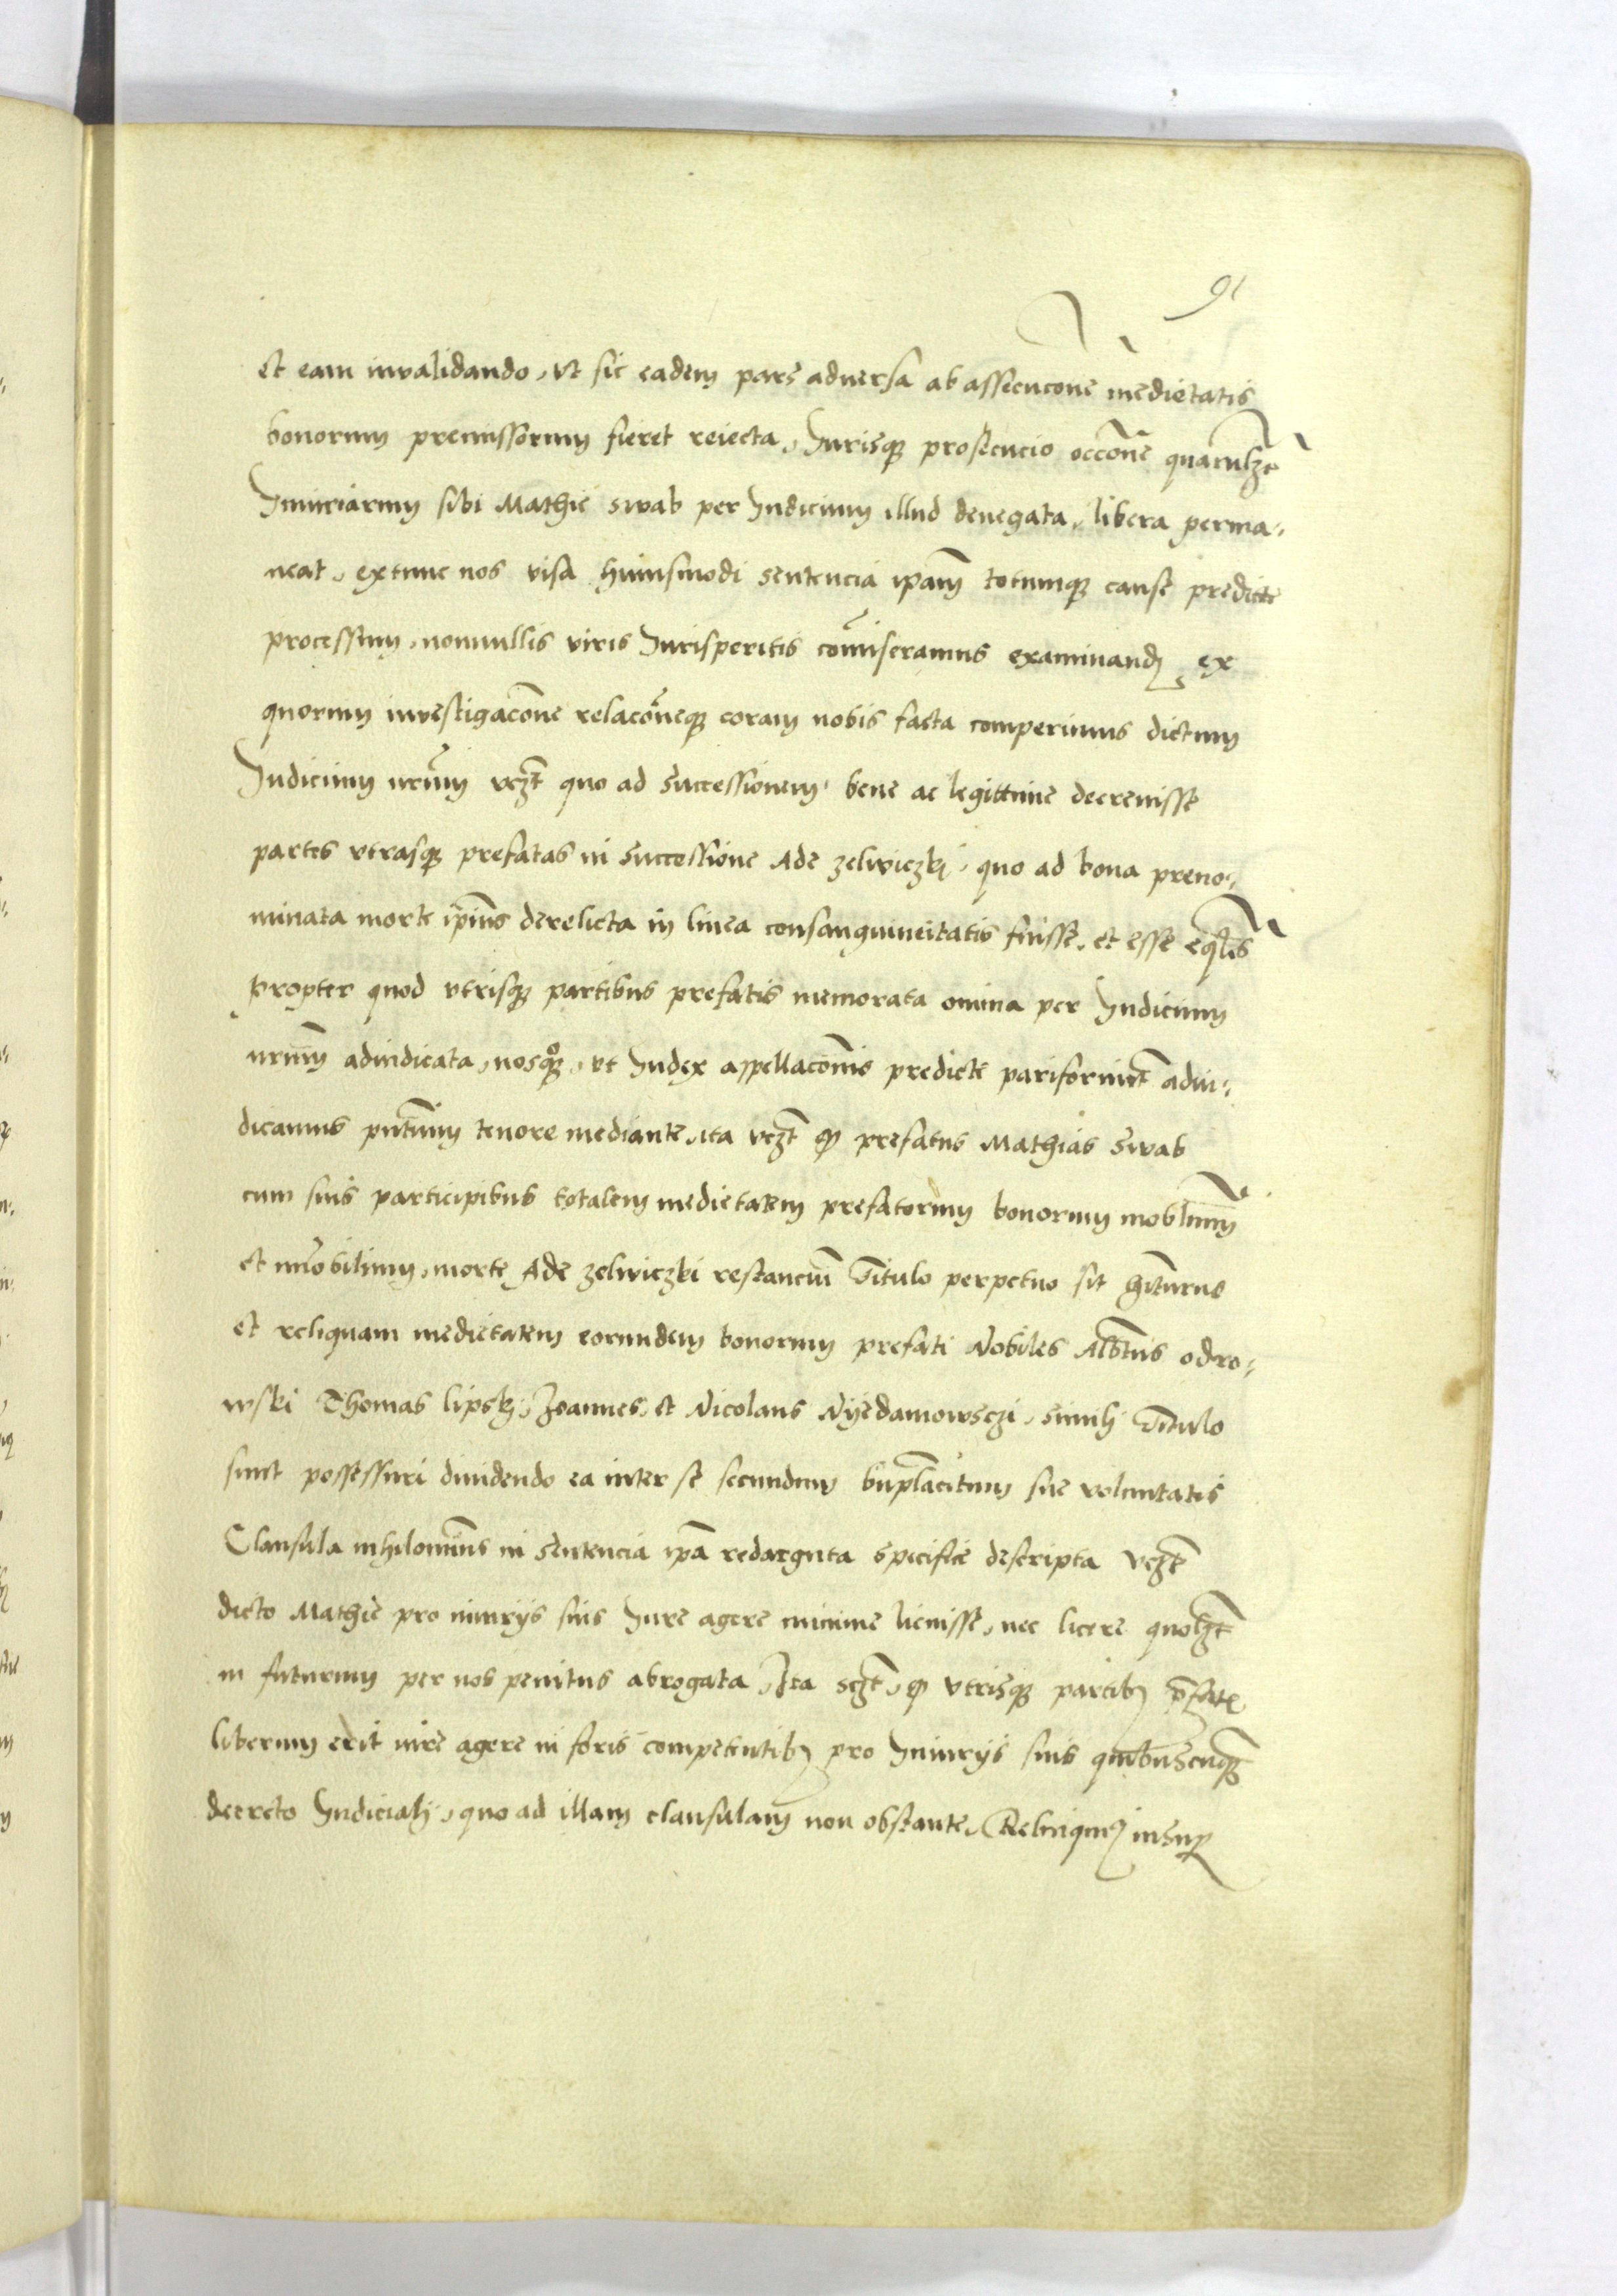 91
et eam invalidando, vt sic eadem pars aduersa ab assecucõne medietatis
bonorum premissorum fieret reiecta, Jurisq3 prosecucio occõne quarulzt
Iniuriarum sibi Mathie Swab per Iudicium illud denegata, libera perma-
neat, extunc nos visa huiusmodi sentencia ipam totumq3 cause predicte
processum, nonnullis viris Iurisperitis comiseramus examinand, ex
quorum investigacõne relacõneq3 coram nobis facta comperimus dictum
Iudicium nrum vczt quo ad successionem bene ac legittime decreuisse
partes vtrasq3 prefatas in successione Ade zeliviczki, quo ad bona preno-
minata morte ipius derelicta in linea consanguineitatis fuisse, et esse eqles
propter quod vtrisq3 partibus prefatis memorata omnia per Iudicium
nrum adiudicata, nosq3, vt Iudex appellacõnis predicte pariformit adiu-
dicamus pntium tenore mediante, ita vczt qp prefatus Mathias Swab
cum suis participibus totalem medietatem prefatorum bonorum moblium
et imobilium, morte Ade zeliviczki restancium Titulo perpetuo sit hiturus
et reliquam medietatem eorundem bonorum prefati Nobiles Albtus odro-
wski Thomas lipsky, Joannes, et Nicolaus Nyedamowsczi, simili Titulo
sunt possessuri diuidendo ea inter se secundum bnplacitum sue voluntatis
Clausula nihilominus in sentencia ipa redarguta specifice descripta vczt
dicto Mathie pro iniurys suis Iure agere minime licuisse, nec licere quolzt
in futurum per nos penitus abrogata, Ita sczt, qp vtrisq3 partib3 pfatis
liberum erit iure agere in foris competentib3 pro Iniurys suis quibuscuq3
decreto Iudiciali, quo ad illam clausulam non obstante, Relinquim9 insup